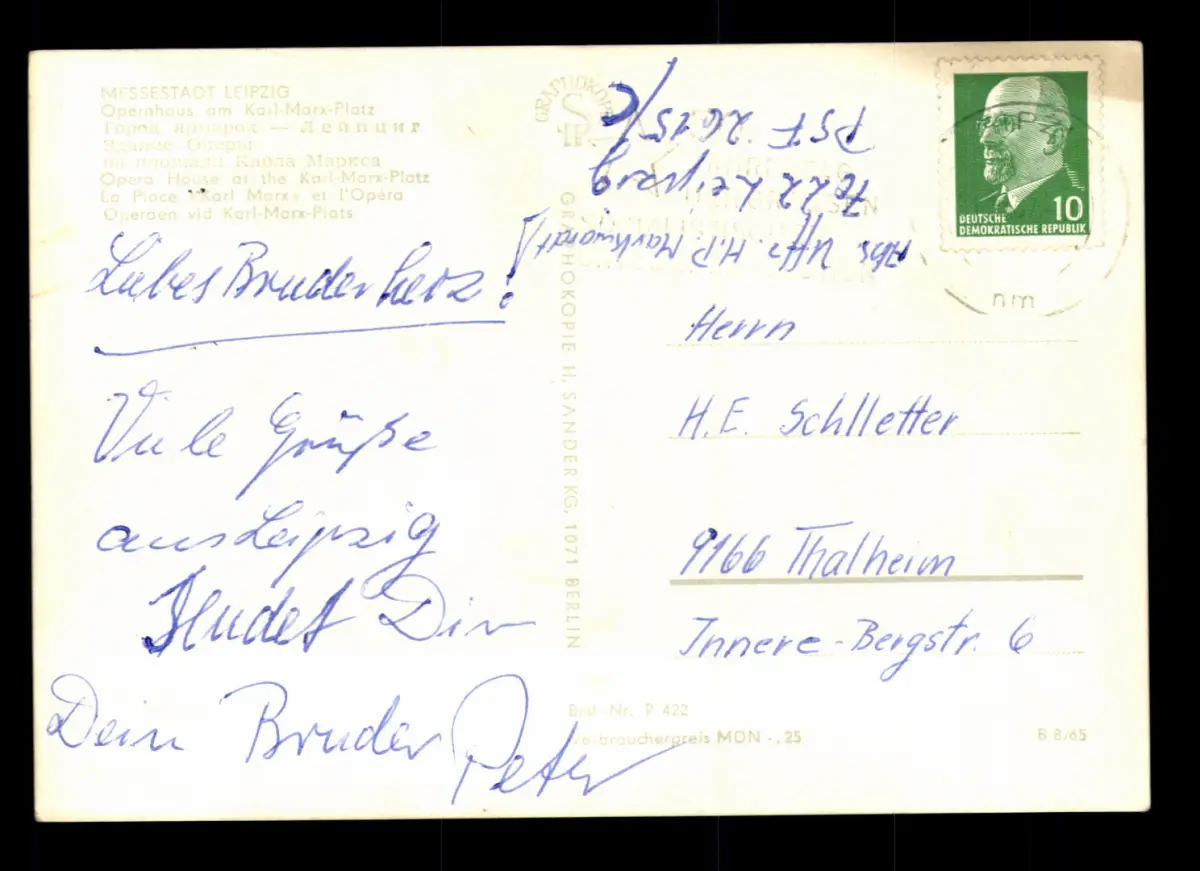 MESSESTADT LEIPZIG
Opernhaus am Karl-Marx-Platz
Город ярмарок — Лейпциг
Здание Оперы
на площади Карла Маркса
Opera House at the Karl-Marx-Platz
La Place »Karl Marx« et l'Opéra
Operaen vid Karl-Marx-Plats
Liebes Bruderherz!
Viele Grüße
aus Leipzig
sendet Dir
Dein Bruder Peter
GRAPHOKOPIE
GRAPHOKOPIE H. SANDER KG, 1071 BERLIN
Abs. Uffz. H.P. Markwardt
7022 Leipzig
PSF 2615/C
DEUTSCHE
DEMOKRATISCHE REPUBLIK
10
nm
Herrn
H.E. Schlletter
9166 Thalheim
Innere-Bergstr. 6
Best.-Nr. P 422
Verbraucherpreis MDN -,25
B 8/65